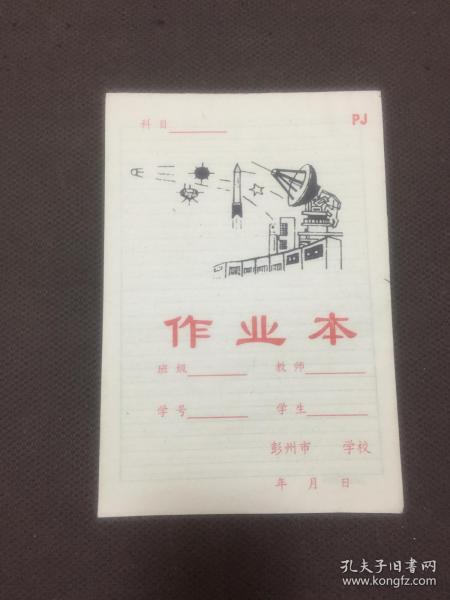 科目
PJ
作业本
班级 教师
学号 学生
彭州市 学校
年 月 日
孔夫子旧书网
www.kongfz.com